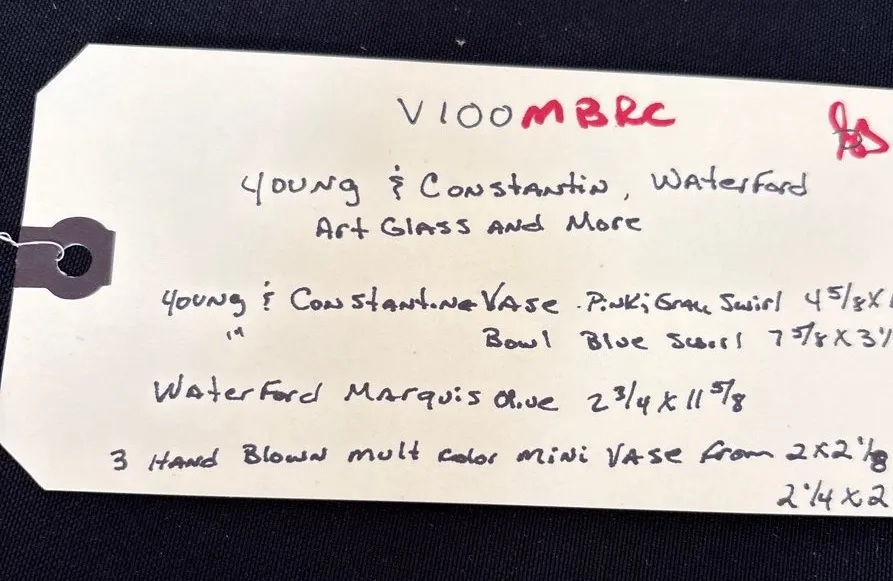 V100MBRC
Young & Constantin, Waterford
Art Glass and More
Young & Constantine Vase Pink; Gray Swirl 4 5/8 X
" Bowl Blue Swirl 7 5/8 X 3
Waterford Marquis Olive 2 3/4 X 11 5/8
3 Hand Blown mult color mini Vase from 2 X 2 1/8
2 1/4 X 2